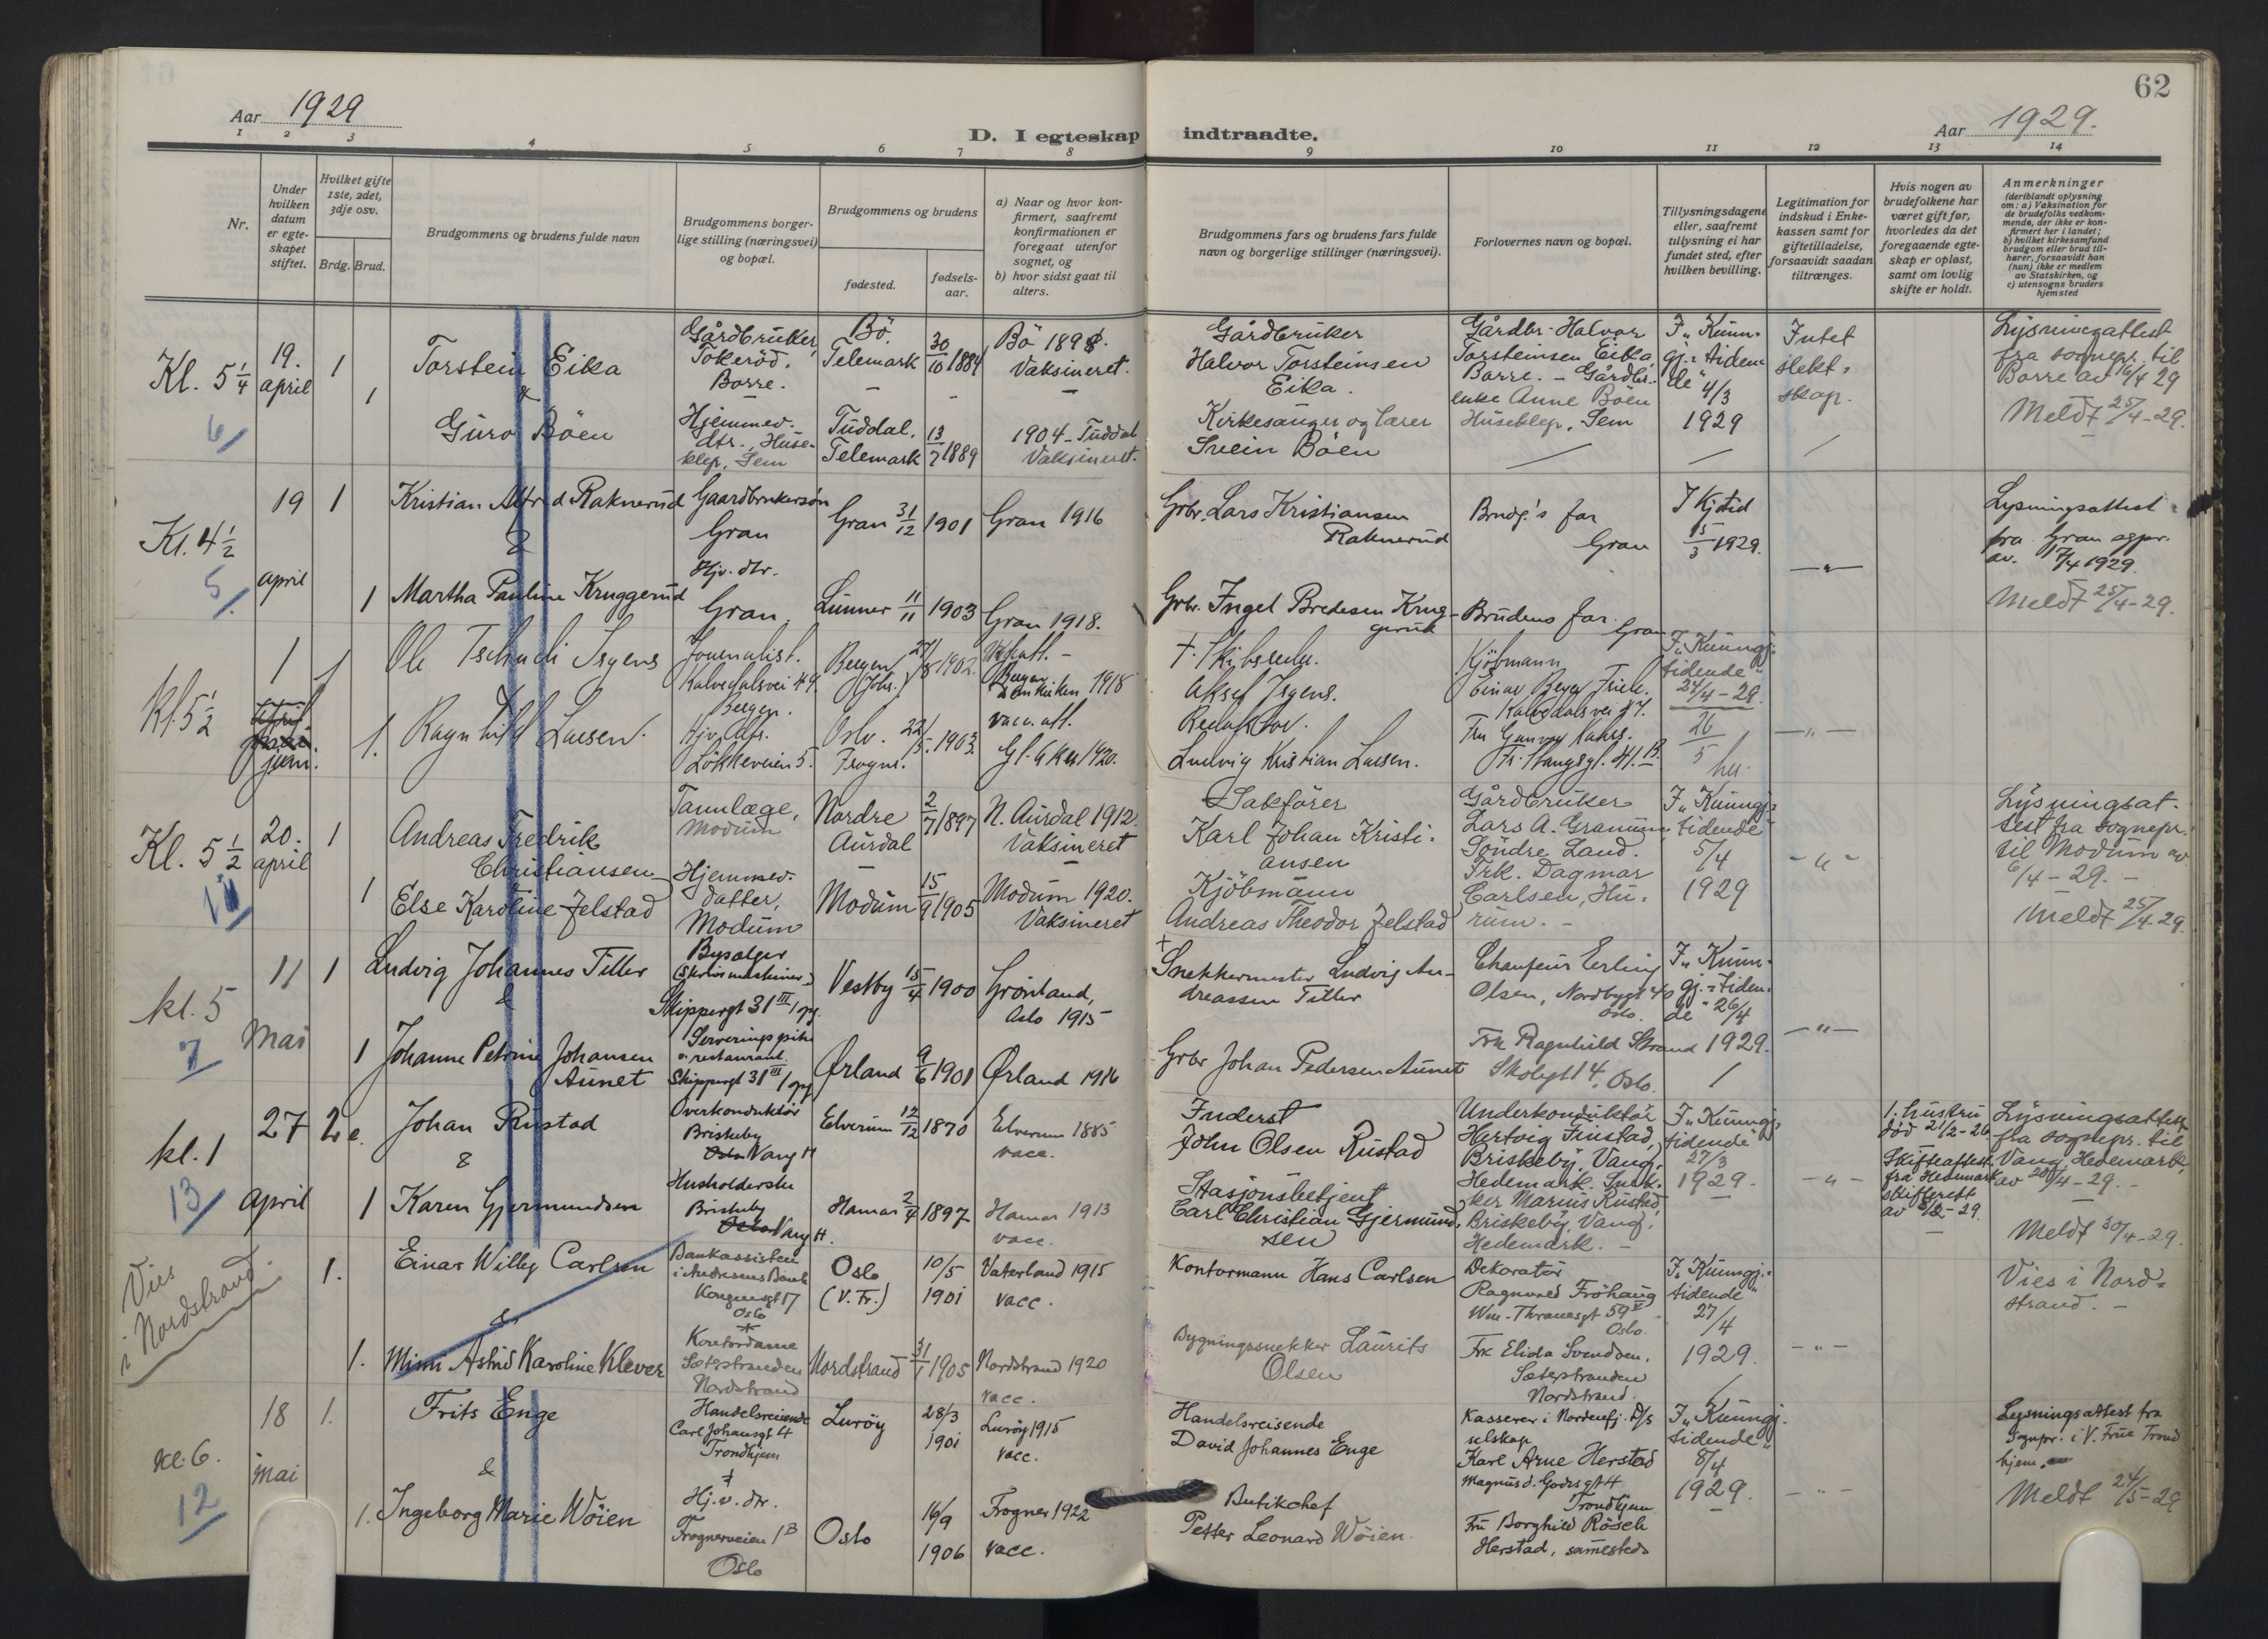 62
Aar 1929
Aar 1929.
D. I egteskap indtraadte.
1 2 3 4 5 6 7 8 9 10 11 12 13 14
Nr.
Under hvilken datum er egte- skapet stiftet.
Hvilket gifte 1ste, 2det, 3dje osv.
Brdg. Brud.
Brudgommens og brudens fulde navn
Brudgommens borger- lige stilling (næringsvei) og bopæl.
Brudgommens og brudens
fødested.
fødsels- aar.
a) Naar og hvor kon- firmert, saafremt konfirmationen er foregaat utenfor sognet, og
b) hvor sidst gaat til alters.
Brudgommens fars og brudens fars fulde navn og borgerlige stillinger (næringsvei).
Forlovernes navn og bopæl.
Tillysningsdagene eller, saafremt tillysning ei har fundet sted, efter hvilken bevilling.
Legitimation for indskud i Enke- kassen samt for giftetilladelse, forsaavidt saadan tiltrænges.
Hvis nogen av brudefolkene har været gift før, hvorledes da det foregaaende egte- skap er opløst, samt om lovlig skifte er holdt.
Anmerkninger (deriblandt oplysning om: a) Vaksination for de brudefolks vedkom- mende, der ikke er kon- firmert her i landet; b) hvilket kirkesamfund brudgom eller brud til- hører, forsaavidt han (hun) ikke er medlem av Statskirken, og c) utensogns bruders hjemsted
Kl. 5 1/4
6
19. april
1
1
Torstein Eika
&
Guro Böen
Gårdbruker, Tokeröd. Borre.
Hjemmev. dtr., Huse- klep, Sem
Bö. Telemark
30/10 1884
Bö 1898. Vaksineret.
Tuddal. Telemark
13/7 1889
1904 - Tuddal Vaksineret.
Gårdbruker
Halvor Torsteinsen
Eika.
Kirkesanger og lærer
Svein Böen
Gårdbr. Halvor
Torsteinsen Eika
Borre. - Gårdbr.-
enke Anne Böen
Huseklep, Sem
I „Kunn- gj.-tiden- de" 4/3 1929
Intet slekt- skap.
Lysningsattest
fra sognepr. til
Borre av 16/4 29
Meldt 25/4-29.
Kl. 4 1/2
5
19 april
1
1
Kristian Alfred Raknerud
&
Martha Pauline Kruggerud
Gaardbrukersøn
Gran
Hjv. dtr.
Gran
Gran 31/12 1901
Gran 1916
Lunner 11/11 1903
Gran 1918.
Grbr. Lars Kristiansen
Raknerud
Grbr. Ingel Bredesen Krug-
gerud
Brudg.'s far
Gran
Brudens far.
Gran
I Kjtid
15/3 1929.
-"-
Lysningsattest
fra Gran sgpr.
av. 17/4 1929.
Meldt 25/4-29.
kl. 5 1/2
1
juni.
1
1.
Ole Tschudi Irgens
Ragnhild Larsen.
Journalist.
Kalvedalsvei 49.
Bergen.
Hjv. dtr.
Løkkeveien 5.
Bergen (Johs.)
27/8 1902.
Oslo. Frogner.
22/5. 1903.
Bergen Domkirken 1918
vacc. att.
Gl. Aker 1920.
† Skibsreder.
Aksel Irgens.
Redaktør.
Ludvig Kristian Larsen.
Kjöbmann
Einar Beyer Friele.
Kalvedalsvei 47.
Fru Gunvor Kahrs.
Fr. Stangsgt. 41. B.
I „Kunngj.-
tidende"
24/4-29.
26/5 her.
-"-
Kl. 5 1/2
11
20. april
1
1
Andreas Fredrik
Christiansen
Else Karoline Jelstad
Tannlæge, Modum
Hjemmev. datter, Modum
Nordre Aurdal
2/7 1897
N. Aurdal 1912. Vaksineret
Modum
15/9 1905
Modum 1920. Vaksineret
Sakfører
Karl Johan Kristi-
ansen
Kjöbmann
Andreas Theodor Jelstad
Gårdbruker
Lars A. Granum,
Söndre Land.
Frk. Dagmar
Carlsen, Hu-
rum. -
I „Kunngj.-
tidende"
5/4
1929
-"-
Lysningsat-
test fra sognepr.
til Modum av
6/4-29. -
Meldt 25/4-29.
kl. 5
7
11 Mai
1
1
Ludvig Johannes Titter
&
Johanne Petrine Johansen
Aunet
Bysælger
(Skrivemaskiner)
Skippergt 31 III opg.
Serveringspike
v. restaurant.
Skippergt 31 III opg
Vestby 15/4 1900
Grönland, Oslo 1915
Ørland 9/6 1901
Ørland 1916
† Snekkermester Ludvig An-
dreassen Titter
Grbr Johan Pedersen Aunet
Chaufeur Erling
Olsen, Nordbygt 40
Oslo.
Frk Ragnhild Strand
Skolegt 4, Oslo.
I „Kunn-
gj.-tiden-
de" 26/4
1929.
-"-
kl. 1
13
27 april
2
1
Johan Rustad
&
Karen Gjermundsen
Overkonduktör
Briskeby
Vang H
Husholderske
Briskeby
Vang H.
Elverum 12/12 1870
Elverum 1885
vacc.
Hamar 2/4 1897
Hamar 1913
vacc.
Inderst
John Olsen Rustad
Stasjonsbetjent
Carl Christian Gjermund-
sen
Underkonduktör
Hertvig Finstad,
Briskeby, Vang,
Hedemark. Snek-
ker Marius Rustad,
Briskeby, Vang,
Hedemark. -
I „Kunngj.-
tidende"
27/3
1929.
-"-
1. hustru
död 21/2-26
Skifteattest
fra Hedemark
skifterett
Lysningsattest
fra sognepr. til
Vang, Hedemark,
av 20/4-29. -
Meldt 30/4-29.
Vies i Nordstrand.
1.
1.
Einar Willy Carlsen
&
Mimi Astrid Karoline Klever
Bankassistent
i Andresens Bank
Kongensgt 17
Oslo
Kontordame
Sæterstranden
Nordstrand
Oslo (V. Fr.)
10/5 1901
Vaterland 1915
vacc.
Nordstrand
31/1 1905
Nordstrand 1920
vacc.
Kontormann Hans Carlsen
Bygningssnekker Laurits
Olsen
Dekoratör
Ragnvald Fröhaug
Wm. Thranesgt 59 II
Oslo.
Frk Elida Svendsen,
Sæterstranden
Nordstrand.
I „Kunngj.-
tidende"
27/4
1929.
-"-
Vies i Nord-
strand. -
kl. 6.
12
18 mai
1.
1.
Frits Enge
&
Ingeborg Marie Wöien
Handelsreisende
Carl Johansgt 4
Trondhjem
Hj. v. dtr.
Frognerveien 1 B
Oslo
Luröy
28/3 1901
Luröy 1915
vacc.
Oslo
16/9 1906
Frogner 1922
vacc.
Handelsreisende
David Johannes Enge
Butikchef
Petter Leonard Wöien.
Kasserer i Nordenfj. D/s
selskap
Karl Arne Herstad
Magnus d. Godes gt 4
Trondhjem
Fru Borghild Rösch
Herstad, samesteds
I „Kunngj.
tidende"
8/4
1929.
-"-
Lysningsattest fra
Sognpr. i V. Frue Trond
hjem.
Meldt 24/5-29